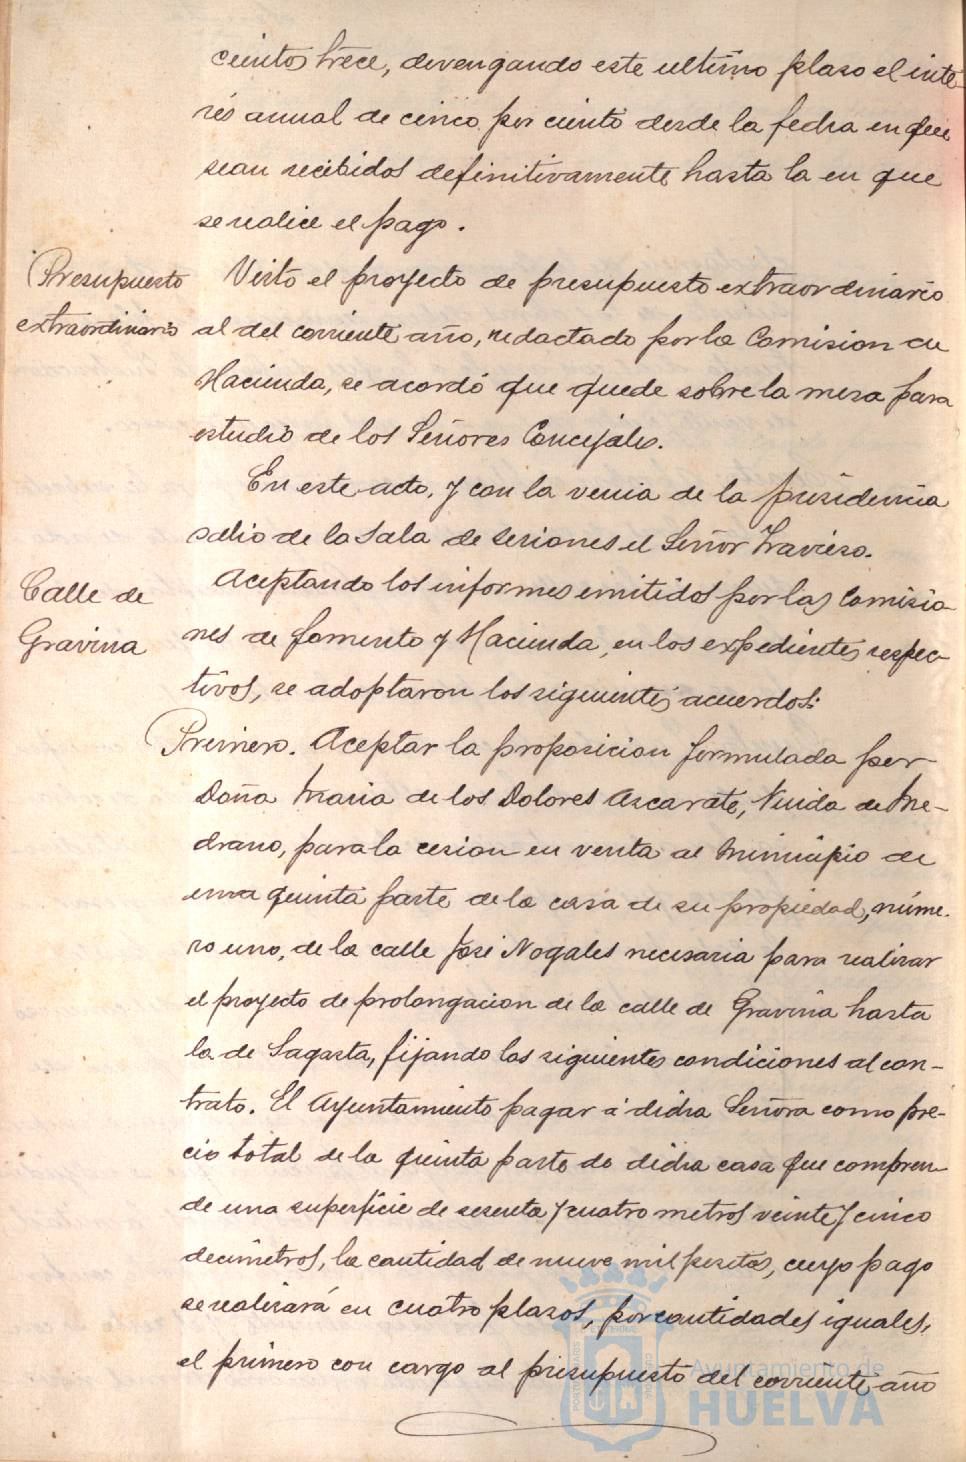 cientos trece, devengando este ultimo plaso el inte-
rés anual de cinco por ciento desde la fecha en que
sean recibidos definitivamente hasta la en que
se realice el pago.
Presupuesto
extraordinario
Visto el proyecto de presupuesto extraordinario
al del corriente año, redactado por la Comision de
Hacienda, se acordó que quede sobre la mesa para
estudio de los Señores Concejales.
En este acto, y con la venia de la presidencia
salio de la Sala de sesiones el Señor Travieso.
Calle de
Gravina
Aceptando los informes emitidos por las Comisio-
nes de fomento y Hacienda, en los expedientes respec-
tivos, se adoptaron los siguientes acuerdos:
Primero. Aceptar la proposicion formulada por
Doña Maria de los Dolores Ascarate, Viuda de Me-
drano, para la cesion en venta al Municipio de
una quinta parte de la casa de su propiedad, núme-
ro uno, de la calle José Nogales necesaria para realizar
el proyecto de prolongacion de la calle de Gravina hasta
la de Sagasta, fijando las siguientes condiciones al con-
trato. El Ayuntamiento pagará dicha Señora como pre-
cio total de la quinta parte de dicha casa que compren-
de una superficie de sesenta y cuatro metros veinte y cinco
decimetros, la cantidad de nueve mil pesetas, cuyo pago
se realisará en cuatro plasos, por cantidades iguales,
el primero con cargo al presupuesto del corriente año
Ayuntamiento de
HUELVA